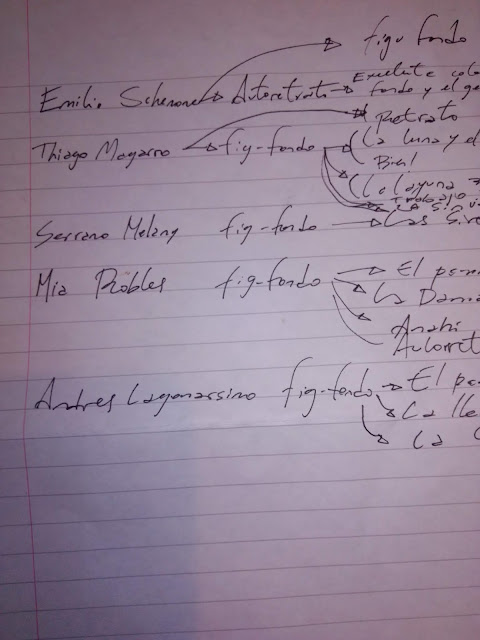 figu fondo
Emilio Schenone Autoretrato Excelente colo
fondo y el ge
Retrato
Thiago Magarro fig-fondo La luna y el
Bien!
La laguna
Trabajo
Serrano Melany fig-fondo Las Sire
Mia Robles fig-fondo El
La Dama
Anahi
Autorret
Andres Lagomarsino fig-fondo El
La lle
La